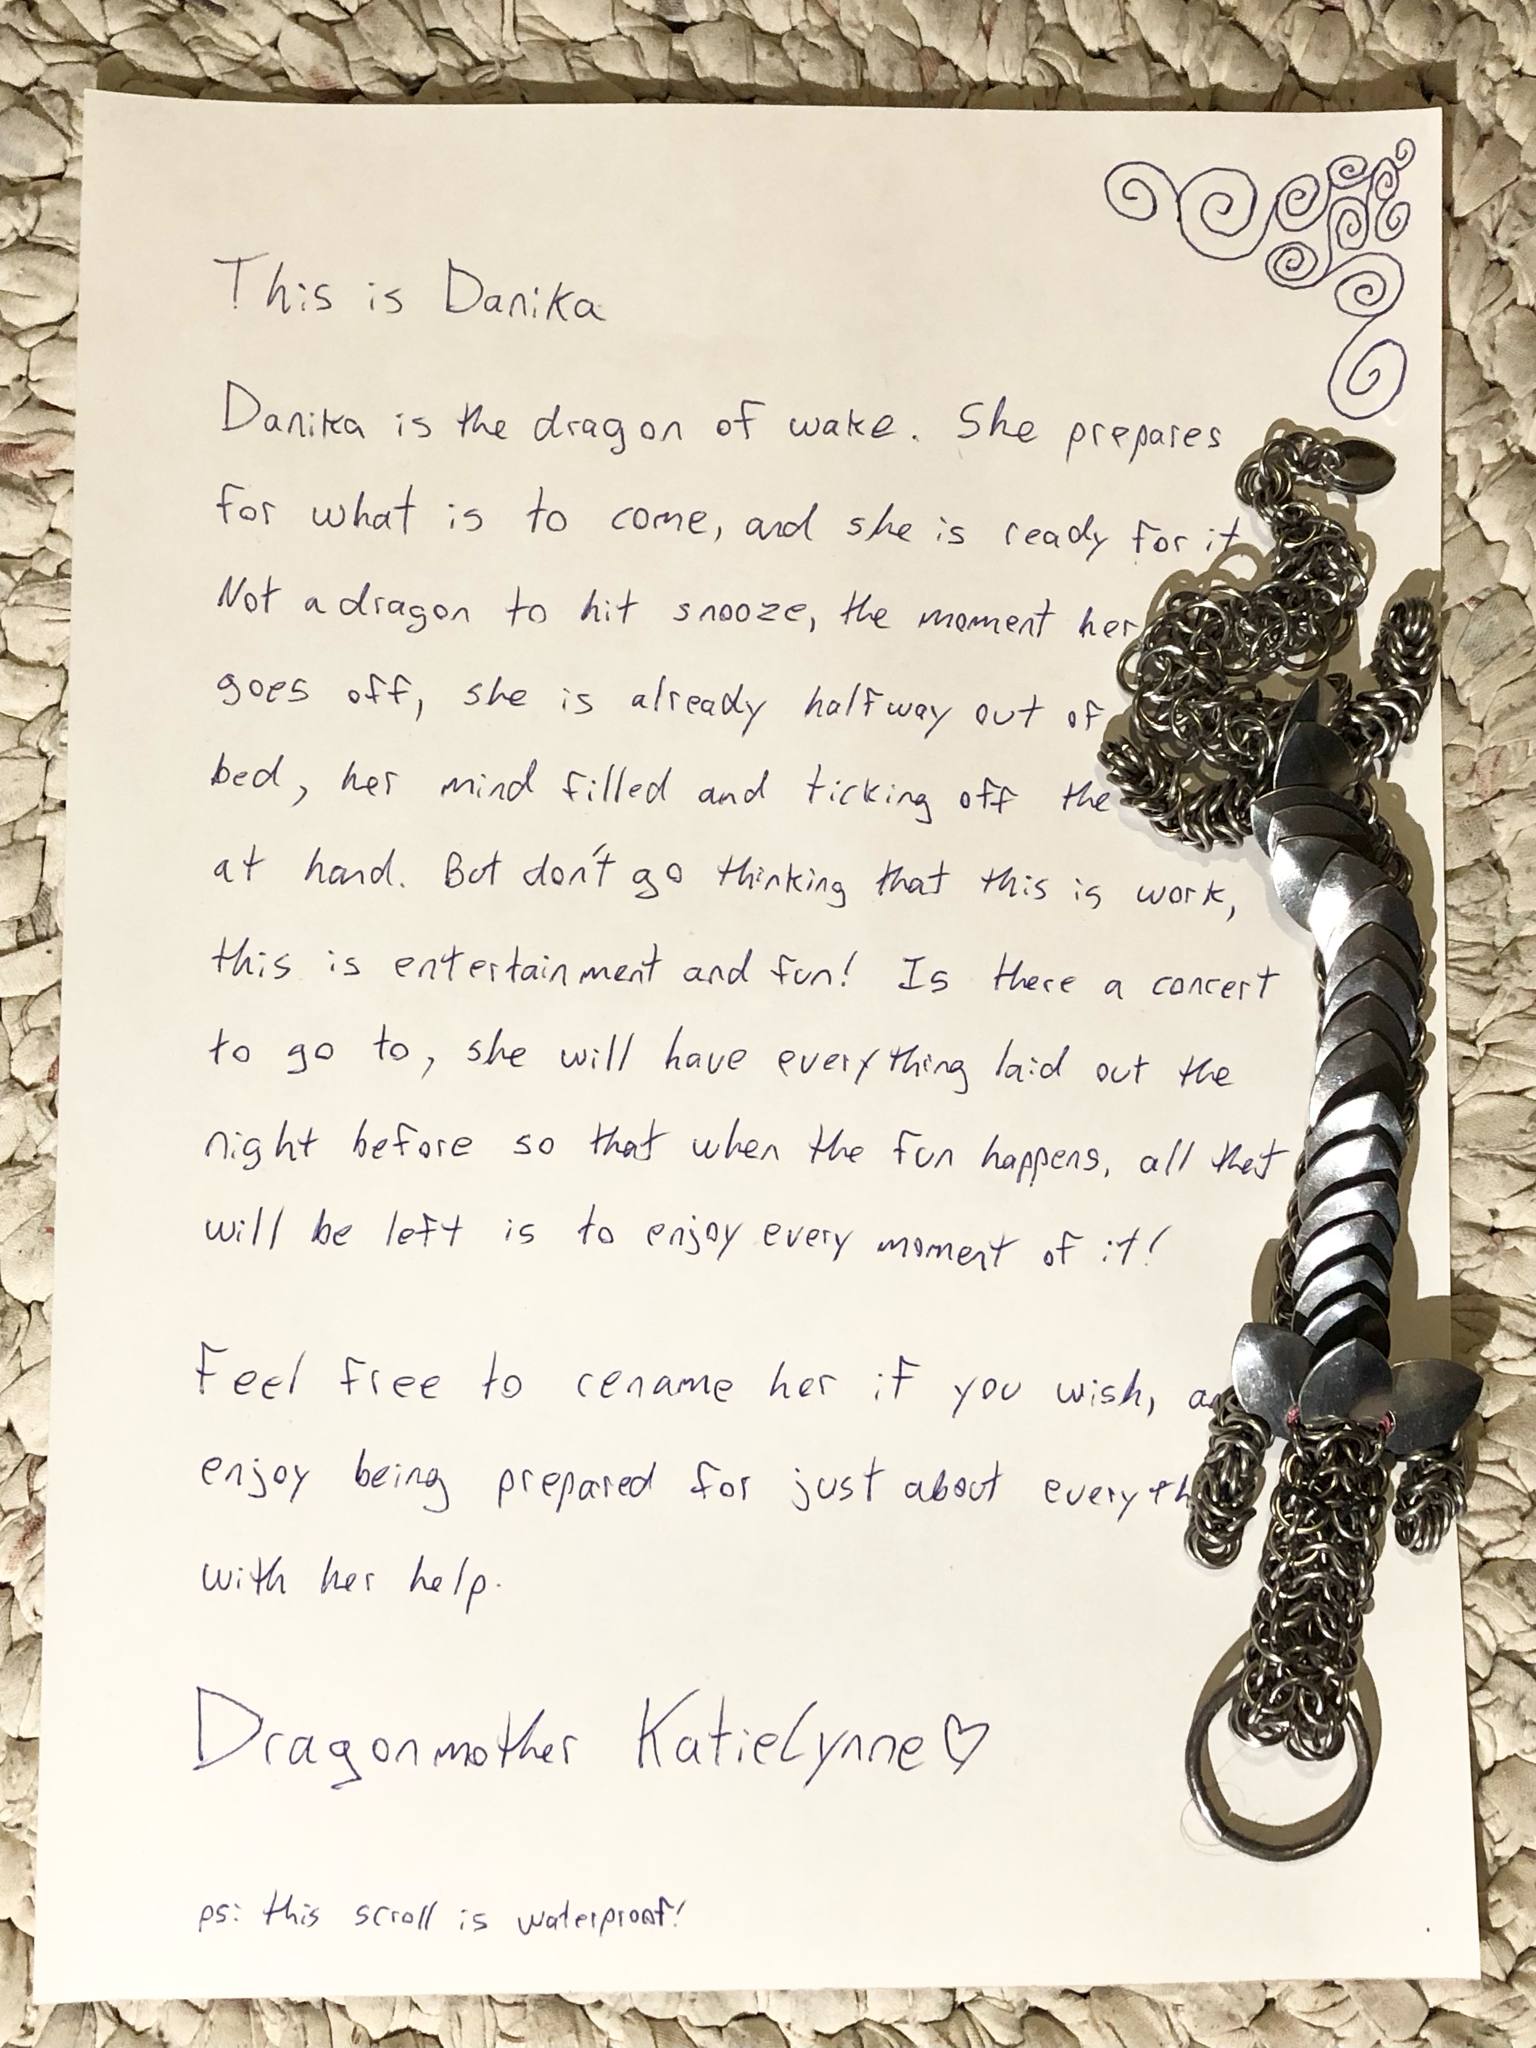 This is Danika
Danika is the dragon of wake. She prepares
for what is to come, and she is ready for it
Not a dragon to hit snooze, the moment her
goes off, she is already halfway out of
bed, her mind filled and ticking off the
at hand. But don't go thinking that this is work,
this is entertainment and fun! Is there a concert
to go to, she will have everything laid out the
night before so that when the fun happens, all that
will be left is to enjoy every moment of it!
Feel free to rename her if you wish,
enjoy being prepared for just about
with her help.
Dragonmother KatieLynne♡
ps: this scroll is waterproof!